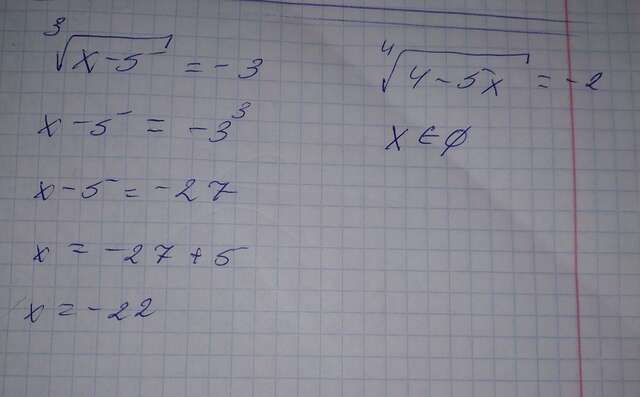 ∛(x-5) = -3
x-5 = -3³
x-5 = -27
x = -27+5
x = -22
∜(4-5x) = -2
x ∈ ∅